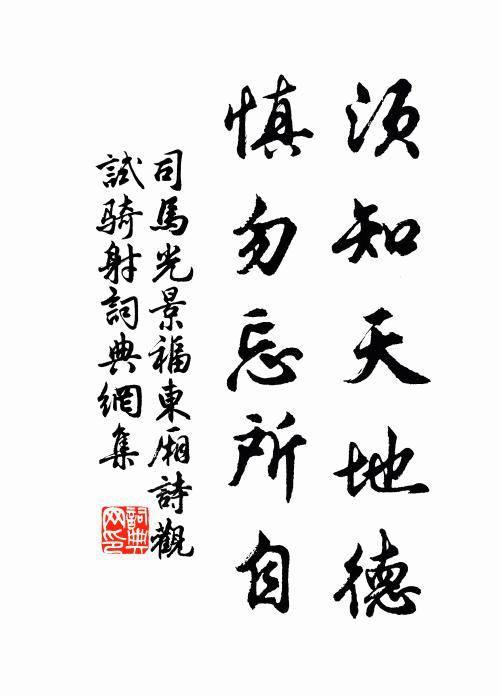 須知天地德
慎勿忘所自
司馬光景福東廂詩觀
試騎射詞典網集
詞典
网印